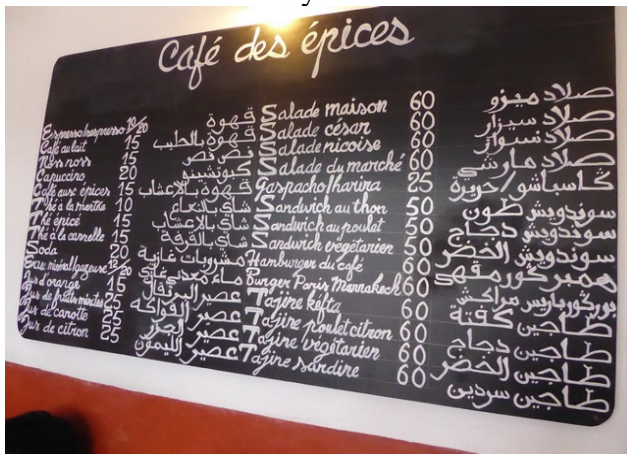 Café des épices
Espresso/nespresso 10/20 قهوة
Café au lait 15 قهوة بالحليب
Nss noss 15 نص نص
Capuccino 20 كبوتشينو
Café aux épices 15 قهوة بالاعشاب
Thé à la menthe 10 شاي بالنعناع
Thé épicé 15 شاي بالاعشاب
Thé à la cannelle 15 شاي بالقرفة
Soda 20 مشروبات غازية
Eau minéral/gazeuse ماء معدني
Jus d'orange عصير البرتقال
Jus de fruits mixtes 25 عصير الفواكه
Jus de carotte 25 عصير الجزر
Jus de citron 25 عصير الليمون
Salade maison 60 صلاد ميزو
Salade césar 60 صلاد سيزار
Salade nicoise 60 صلاد نسواز
Salade du marché 60 صلاد مارشي
Gaspacho/harira 25 كاسباشو/حريرة
Sandwich au thon 50 سوندويش طون
Sandwich au poulet 50 سوندويش دجاج
Sandwich végétarien 50 سوندويش الخضر
Hamburger du café 60 همبركور مقهى
Burger Paris Marrakech 60 بوركور باريس مراكش
Tajine kefta 60 طاجين كفتة
Tajine poulet citron 60 طاجين دجاج
Tajine végétarien 60 طاجين الخضر
Tajine sardine 60 طاجين سردين